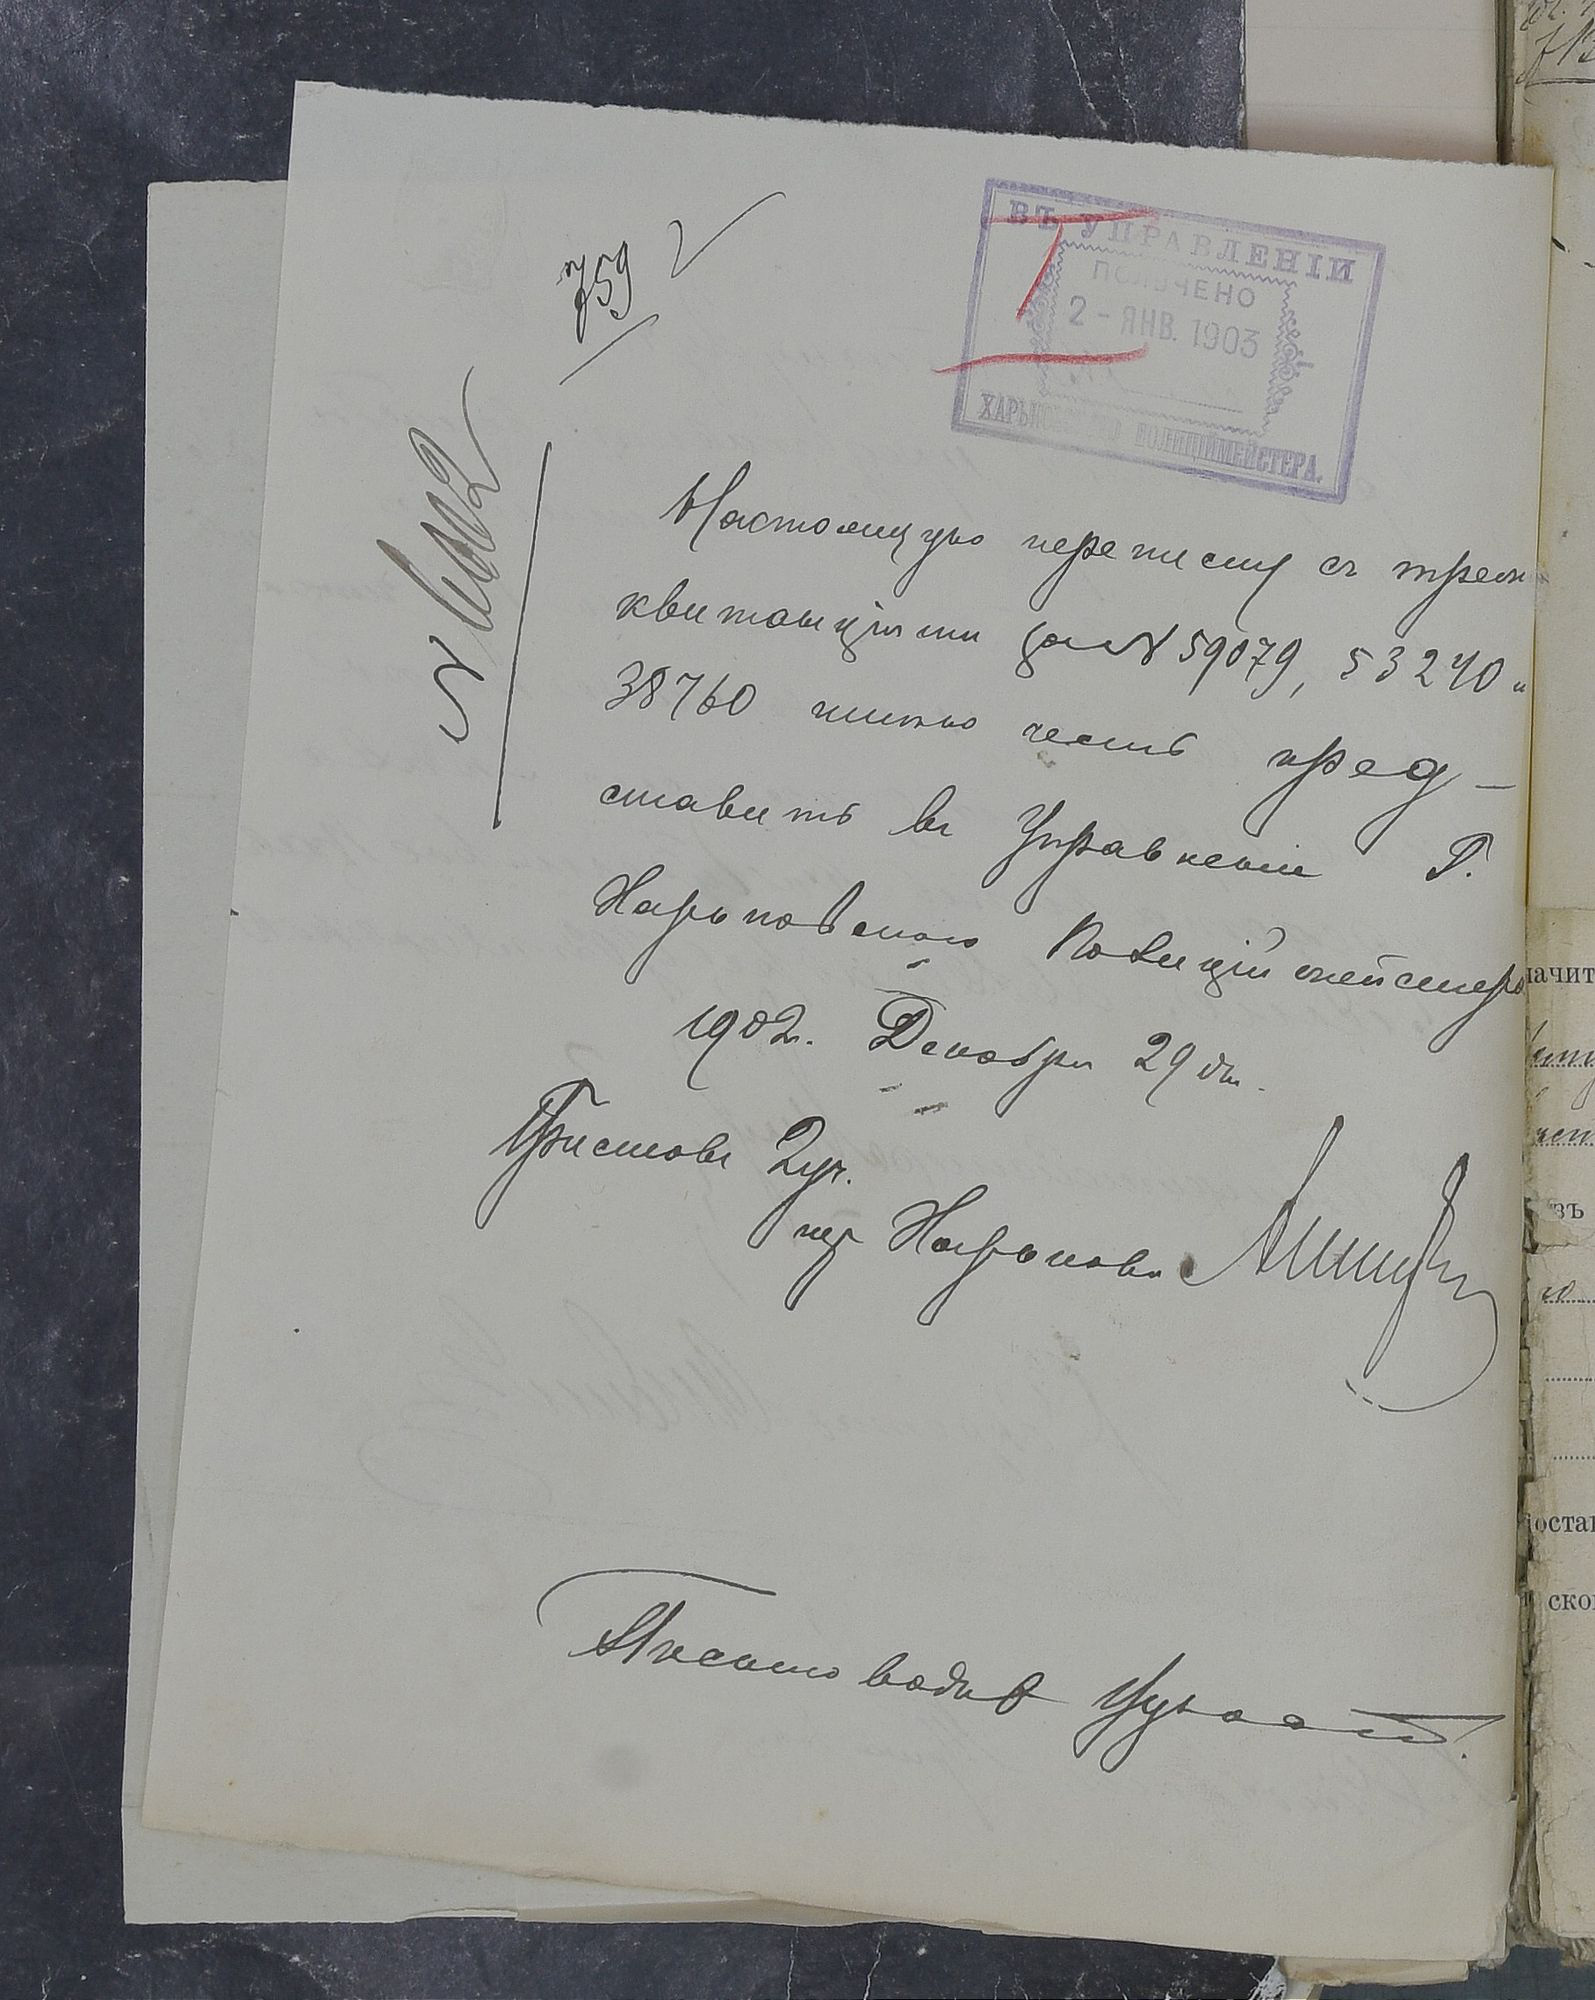 759
ВЪ УПРАВЛЕНІИ
ПОЛУЧЕНО
2 - ЯНВ. 1903
ХАРЬКОВСКАГО ПОЛИЦІЙМЕЙСТЕРА.
Настоящую переписку съ тремя
квитанціями за № 59079, 53240 и
38760 имѣю честь пред-
ставить въ Управленіи Г.
Харьковскаго Полиційместера
1902 г. Декабря 29 дн.
Приставъ 2 уч.
гор Харькова
Письмоводив
начит
зъ
остан
ско